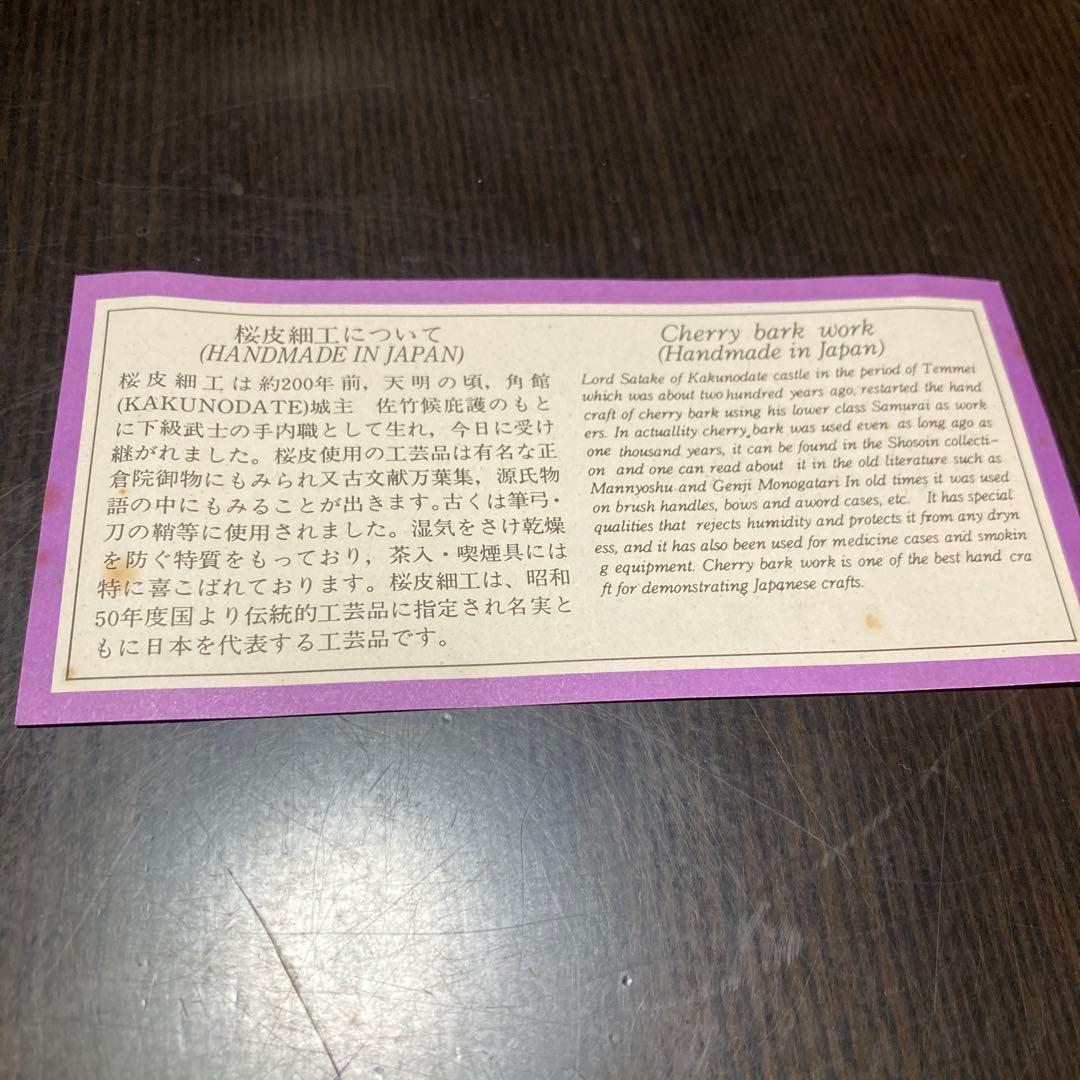 桜皮細工について
(HANDMADE IN JAPAN)
桜皮細工は約200年前，天明の頃，角館
(KAKUNODATE)城主　佐竹候庇護のもと
に下級武士の手内職として生れ，今日に受け
継がれました。桜皮使用の工芸品は有名な正
倉院御物にもみられ又古文献万葉集，源氏物
語の中にもみることが出きます。古くは筆弓・
刀の鞘等に使用されました。湿気をさけ乾燥
を防ぐ特質をもっており，茶入・喫煙具には
特に喜こばれております。桜皮細工は、昭和
50年度国より伝統的工芸品に指定され名実と
もに日本を代表する工芸品です。
Cherry bark work
(Handmade in Japan)
Lord Satake of Kakunodate castle in the period of Temmei
which was about two hundred years ago, restarted the hand
craft of cherry bark using his lower class Samurai as work
ers. In actuallity cherry bark was used even as long ago as
one thousand years, it can be found in the Shosoin collecti-
on and one can read about it in the old literature such as
Mannyoshu and Genji Monogatari In old times it was used
on brush handles, bows and aword cases, etc. It has special
qualities that rejects humidity and protects it from any dryn
ess, and it has also been used for medicine cases and smokin
g equipment. Cherry bark work is one of the best hand cra
ft for demonstrating Japanese crafts.